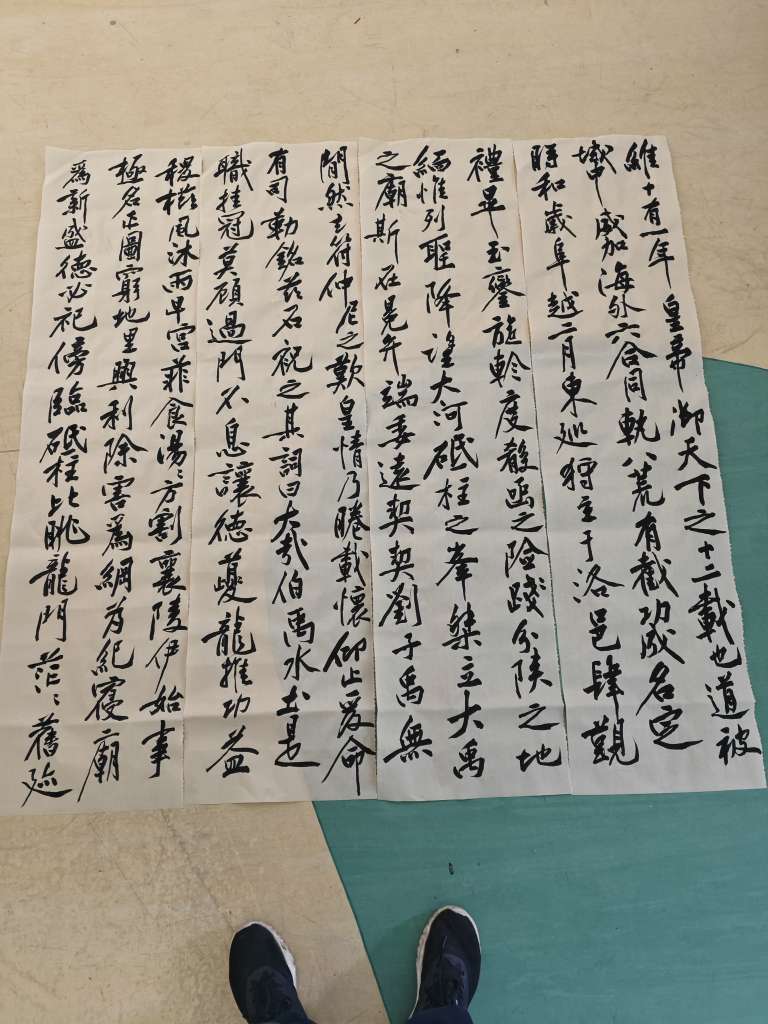 維十有一年皇帝御天下之十二載也道被
域中威加海外六合同軌八荒有截功成名定
時和歲阜越二月東巡狩至于洛邑肆覲
禮畢玉鑾旋軫度殽函之險踐分陝之地
緬惟列聖降望大河砥柱之峯桀立大禹
之廟斯在冕弁端委遠契契劉子禹無
間然玄符仲尼之歎皇情乃睠載懷仰止爰命
有司勒銘茲石祝之其詞曰大哉伯禹水土是
職挂冠莫顧過門不息讓德夔龍推功益
稷櫛風沐雨卑宮菲食湯〻方割襄陵伊始事
極名正圖窮地里興利除害爲綱爲紀寢廟
爲新盛德必祀傍臨砥柱北眺龍門茫〻舊迹